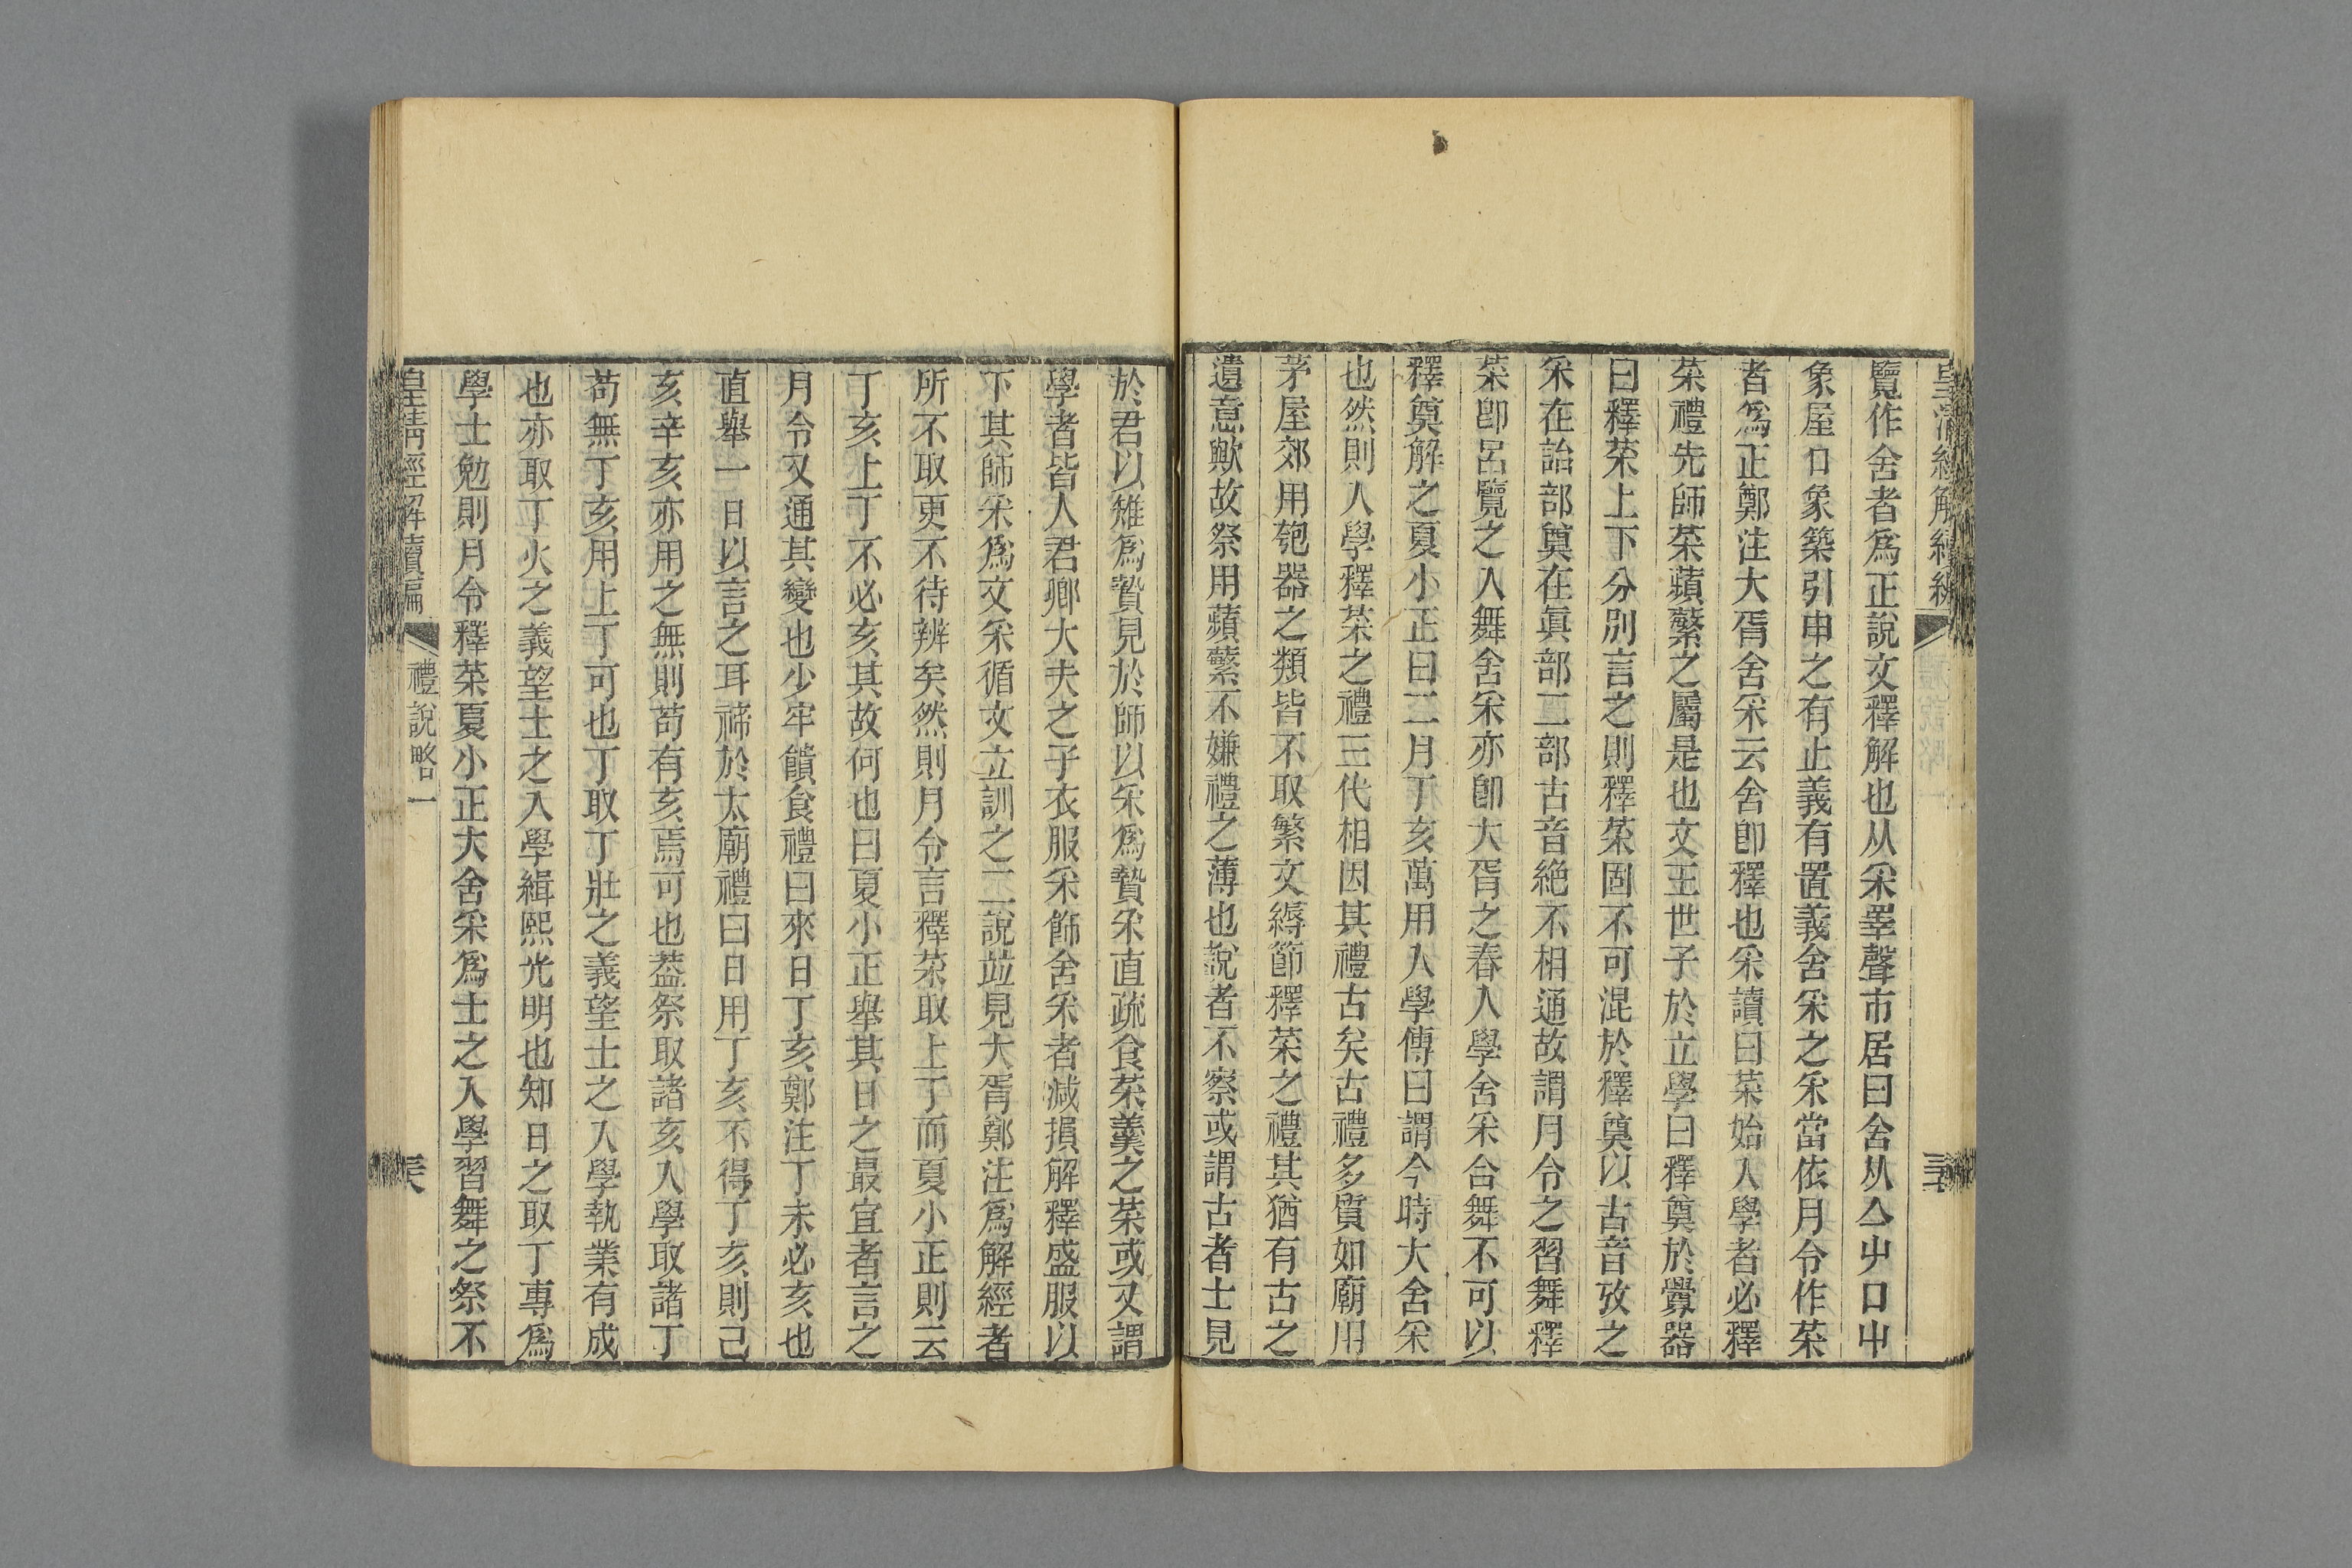 皇清經解續編
覽作舍者爲正說文釋解也从釆睪聲市居曰舍从亼屮口屮
象屋口象築引申之有止義有置義舍釆之釆當依月令作菜
者爲正鄭注大胥舍釆云舍卽釋也釆讀曰菜始入學者必釋
菜禮先師菜蘋蘩之屬是也文王世子於立學曰釋奠於釁器
曰釋菜上下分別言之則釋菜固不可混於釋奠以古音攷之
釆在詒部奠在眞部二部古音絶不相通故謂月令之習舞釋
菜卽呂覽之入舞舍釆亦卽大胥之春入學舍釆合舞不可以
釋奠解之夏小正曰二月丁亥萬用入學傳曰謂今時大舍釆
也然則入學釋菜之禮三代相因其禮古矣古禮多質如廟用
茅屋郊用匏器之類皆不取繁文縟節釋菜之禮其猶有古之
遺意歟故祭用蘋蘩不嫌禮之薄也說者不察或謂古者士見
於君以雉爲贄見於師以釆爲贄釆直疏食菜羹之菜或又謂
學者皆人君卿大夫之子衣服釆飾舍釆者減損解釋盛服以
下其師釆爲文釆循文立訓之二說竝見大胥鄭注爲解經者
所不取更不待辨矣然則月令言釋菜取上丁而夏小正則云
丁亥上丁不必亥其故何也曰夏小正舉其日之最宜者言之
月令又通其變也少牢饋食禮曰來日丁亥鄭注丁未必亥也
直舉一日以言之耳禘於太廟禮曰日用丁亥不得丁亥則己
亥辛亥亦用之無則苟有亥焉可也葢祭取諸亥入學取諸丁
苟無丁亥用上丁可也丁取丁壯之義望士之入學執業有成
也亦取丁火之義望士之入學緝熙光明也知日之取丁專爲
學士勉則月令釋菜夏小正大舍釆爲士之入學習舞之祭不
皇清經解續編
禮說略一